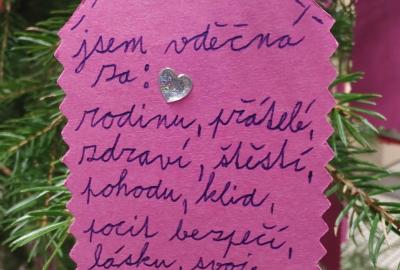 jsem vděčná
za:
rodinu, přátelé,
zdraví, štěstí,
pohodu, klid,
pocit bezpečí,
lásku, svoje